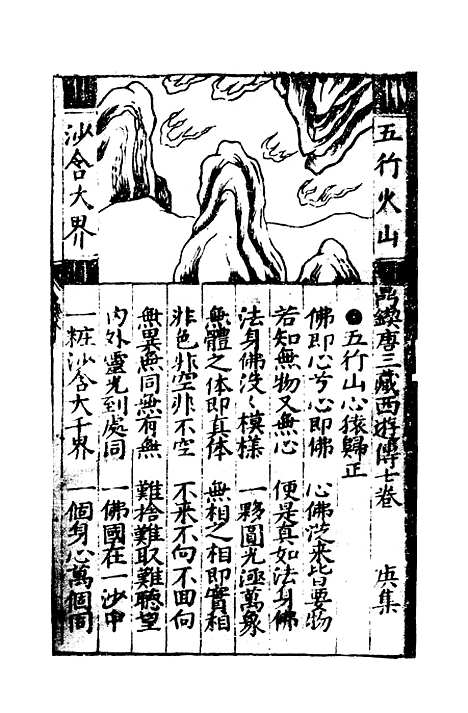 五行火山
沙含大界
鼎鍥唐三藏西遊傳七卷 庚集
五行山心猿歸正
佛即心兮心即佛 心佛從來皆要物
若知無物又無心 便是真如法身佛
法身佛沒〻模樣 一顆圓光涵萬象
無體之体即真体 無相之相即實相
非色非空非不空 不来不向不囬向
無異無同無有無 難捨難取難聽望
内外靈光到處同 一佛國在一沙中
一粒沙含大千界 一個身心萬個同